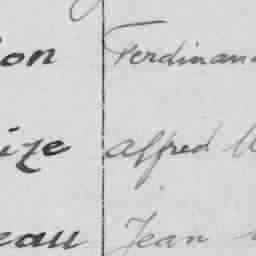 ion Ferdinand
ize Alfred
eau Jean